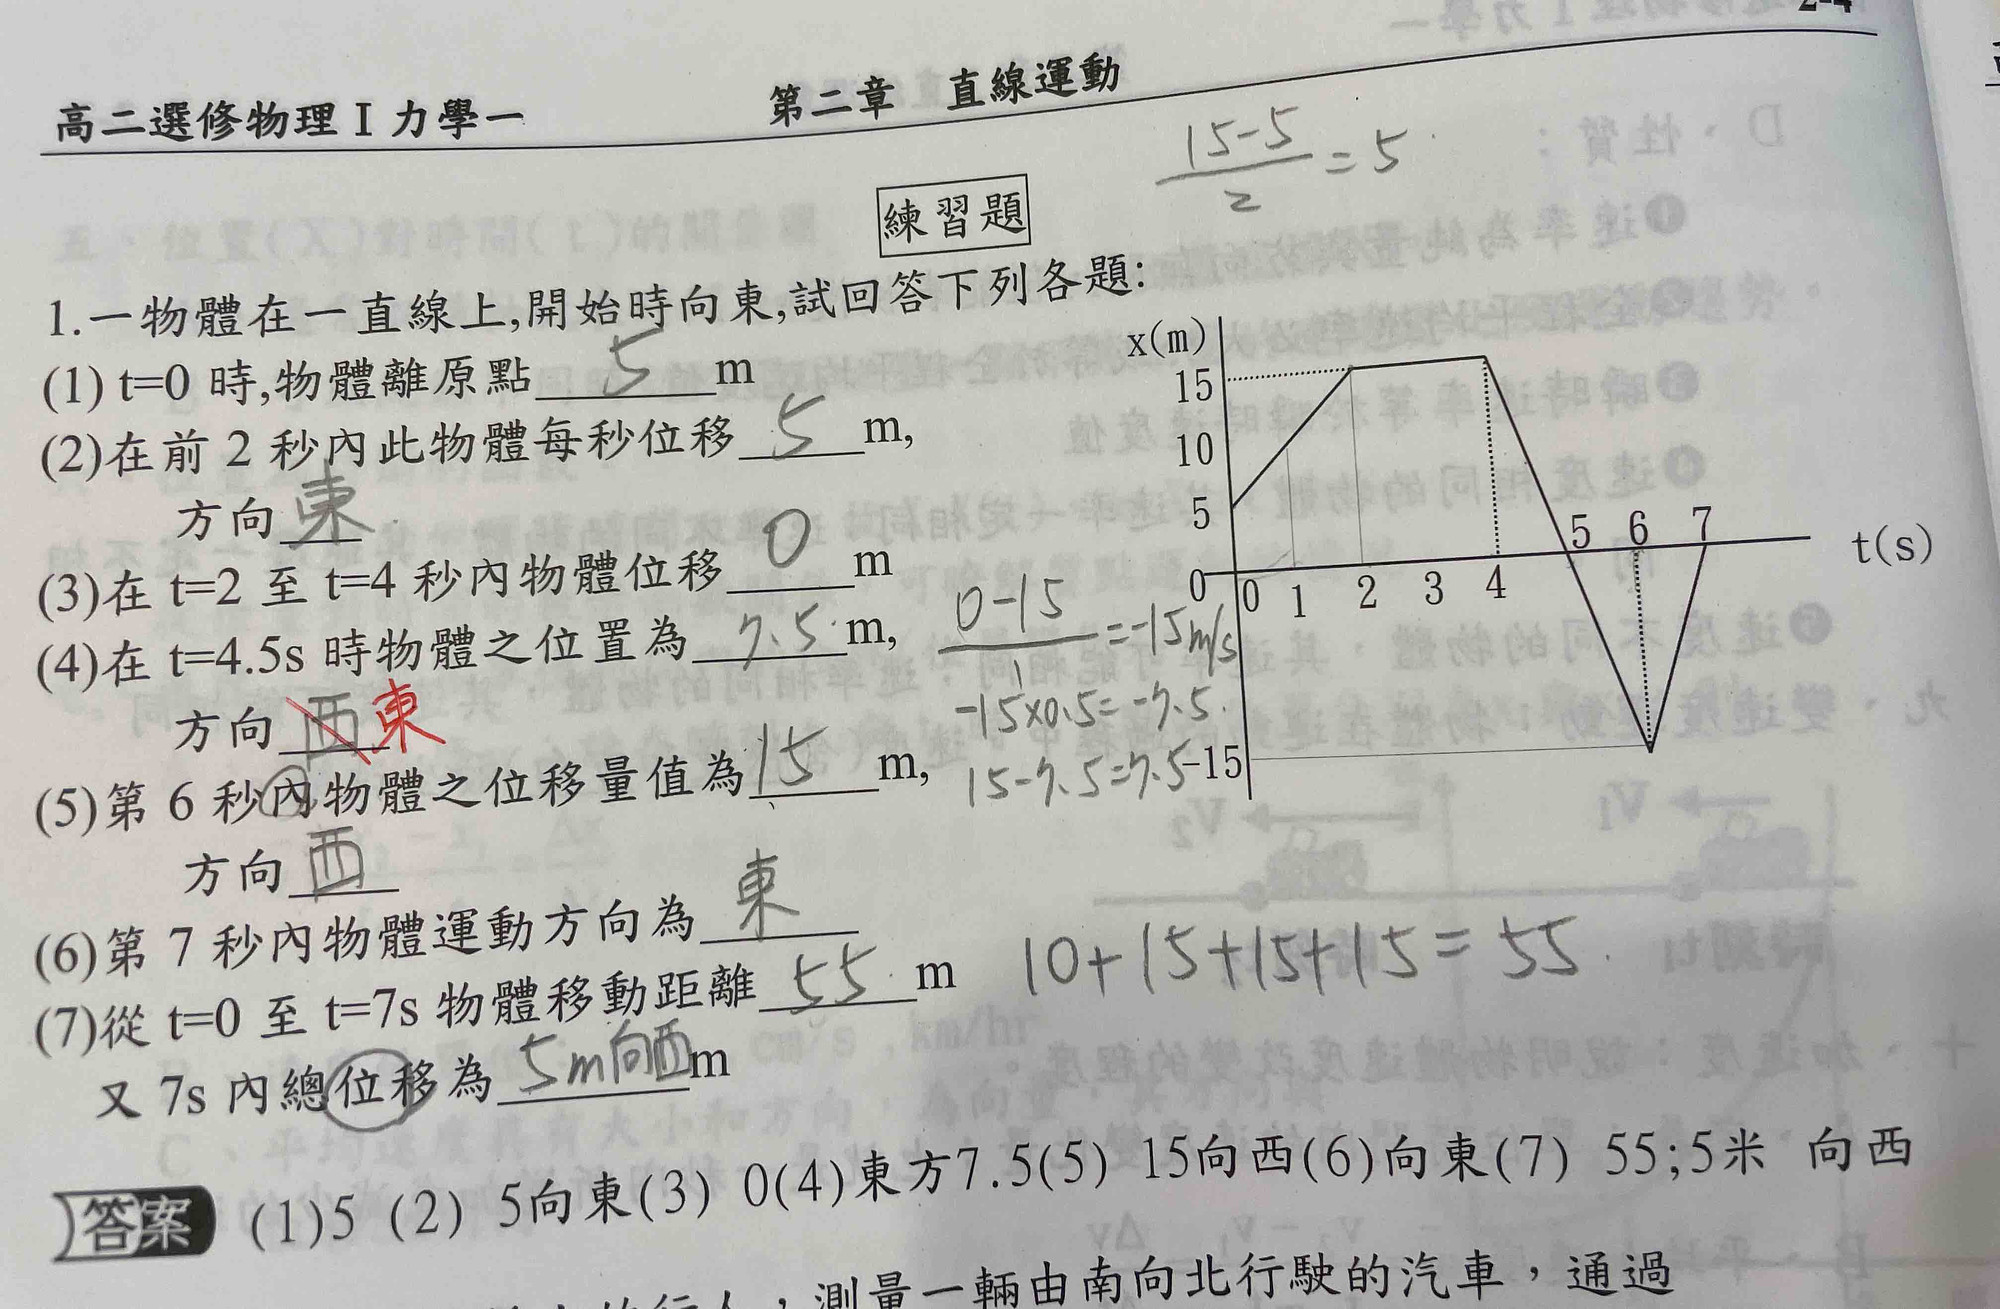 2-4
高二選修物理I力學一
第二章 直線運動
15-5
2
=5
練習題
1.一物體在一直線上,開始時向東,試回答下列各題:
(1) t=0 時,物體離原點 5 m
(2)在前 2 秒內此物體每秒位移 5 m,
方向 東
(3)在 t=2 至 t=4 秒內物體位移 0 m
(4)在 t=4.5s 時物體之位置為 7.5 m,
方向 西 東
(5)第 6 秒內物體之位移量值為 15 m,
方向 西
(6)第 7 秒內物體運動方向為 東
(7)從 t=0 至 t=7s 物體移動距離 55 m
又 7s 內總位移為 5m向西 m
x(m)
15
10
5
0
0 1 2 3 4 5 6 7 t(s)
-15
0-15
1
=-15m/s
-15×0.5=-7.5
15-7.5=7.5
10+15+15+15=55
答案 (1)5 (2) 5向東(3) 0(4)東方7.5(5) 15向西(6)向東(7) 55;5米 向西
行人，測量一輛由南向北行駛的汽車，通過